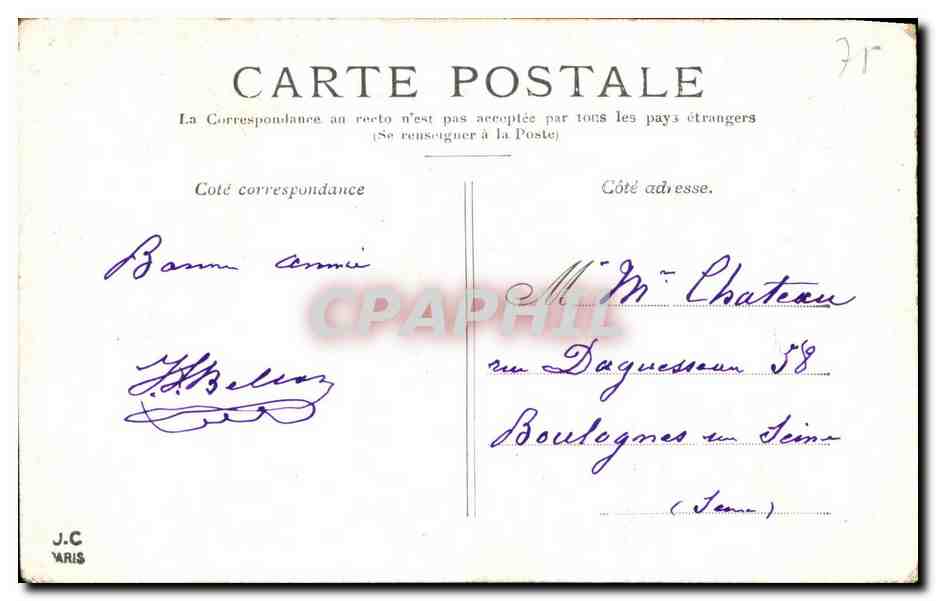 75
CARTE POSTALE
La Correspondance au recto n'est pas acceptée par tous les pays étrangers
(Se renseigner à la Poste)
Coté correspondance
Côté adresse.
Bonne année
Mr Mr Chateau
rue Daguesseau 58
Boulognes sur Seine
(Seine)
CPAPHIL
J.C
PARIS